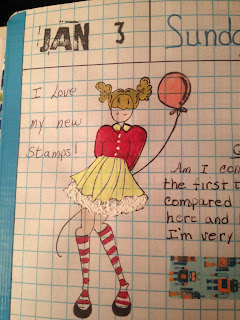 JAN 3 Sunda
I love
my new
stamps!
Am I con
the first
compared
here and
I'm very